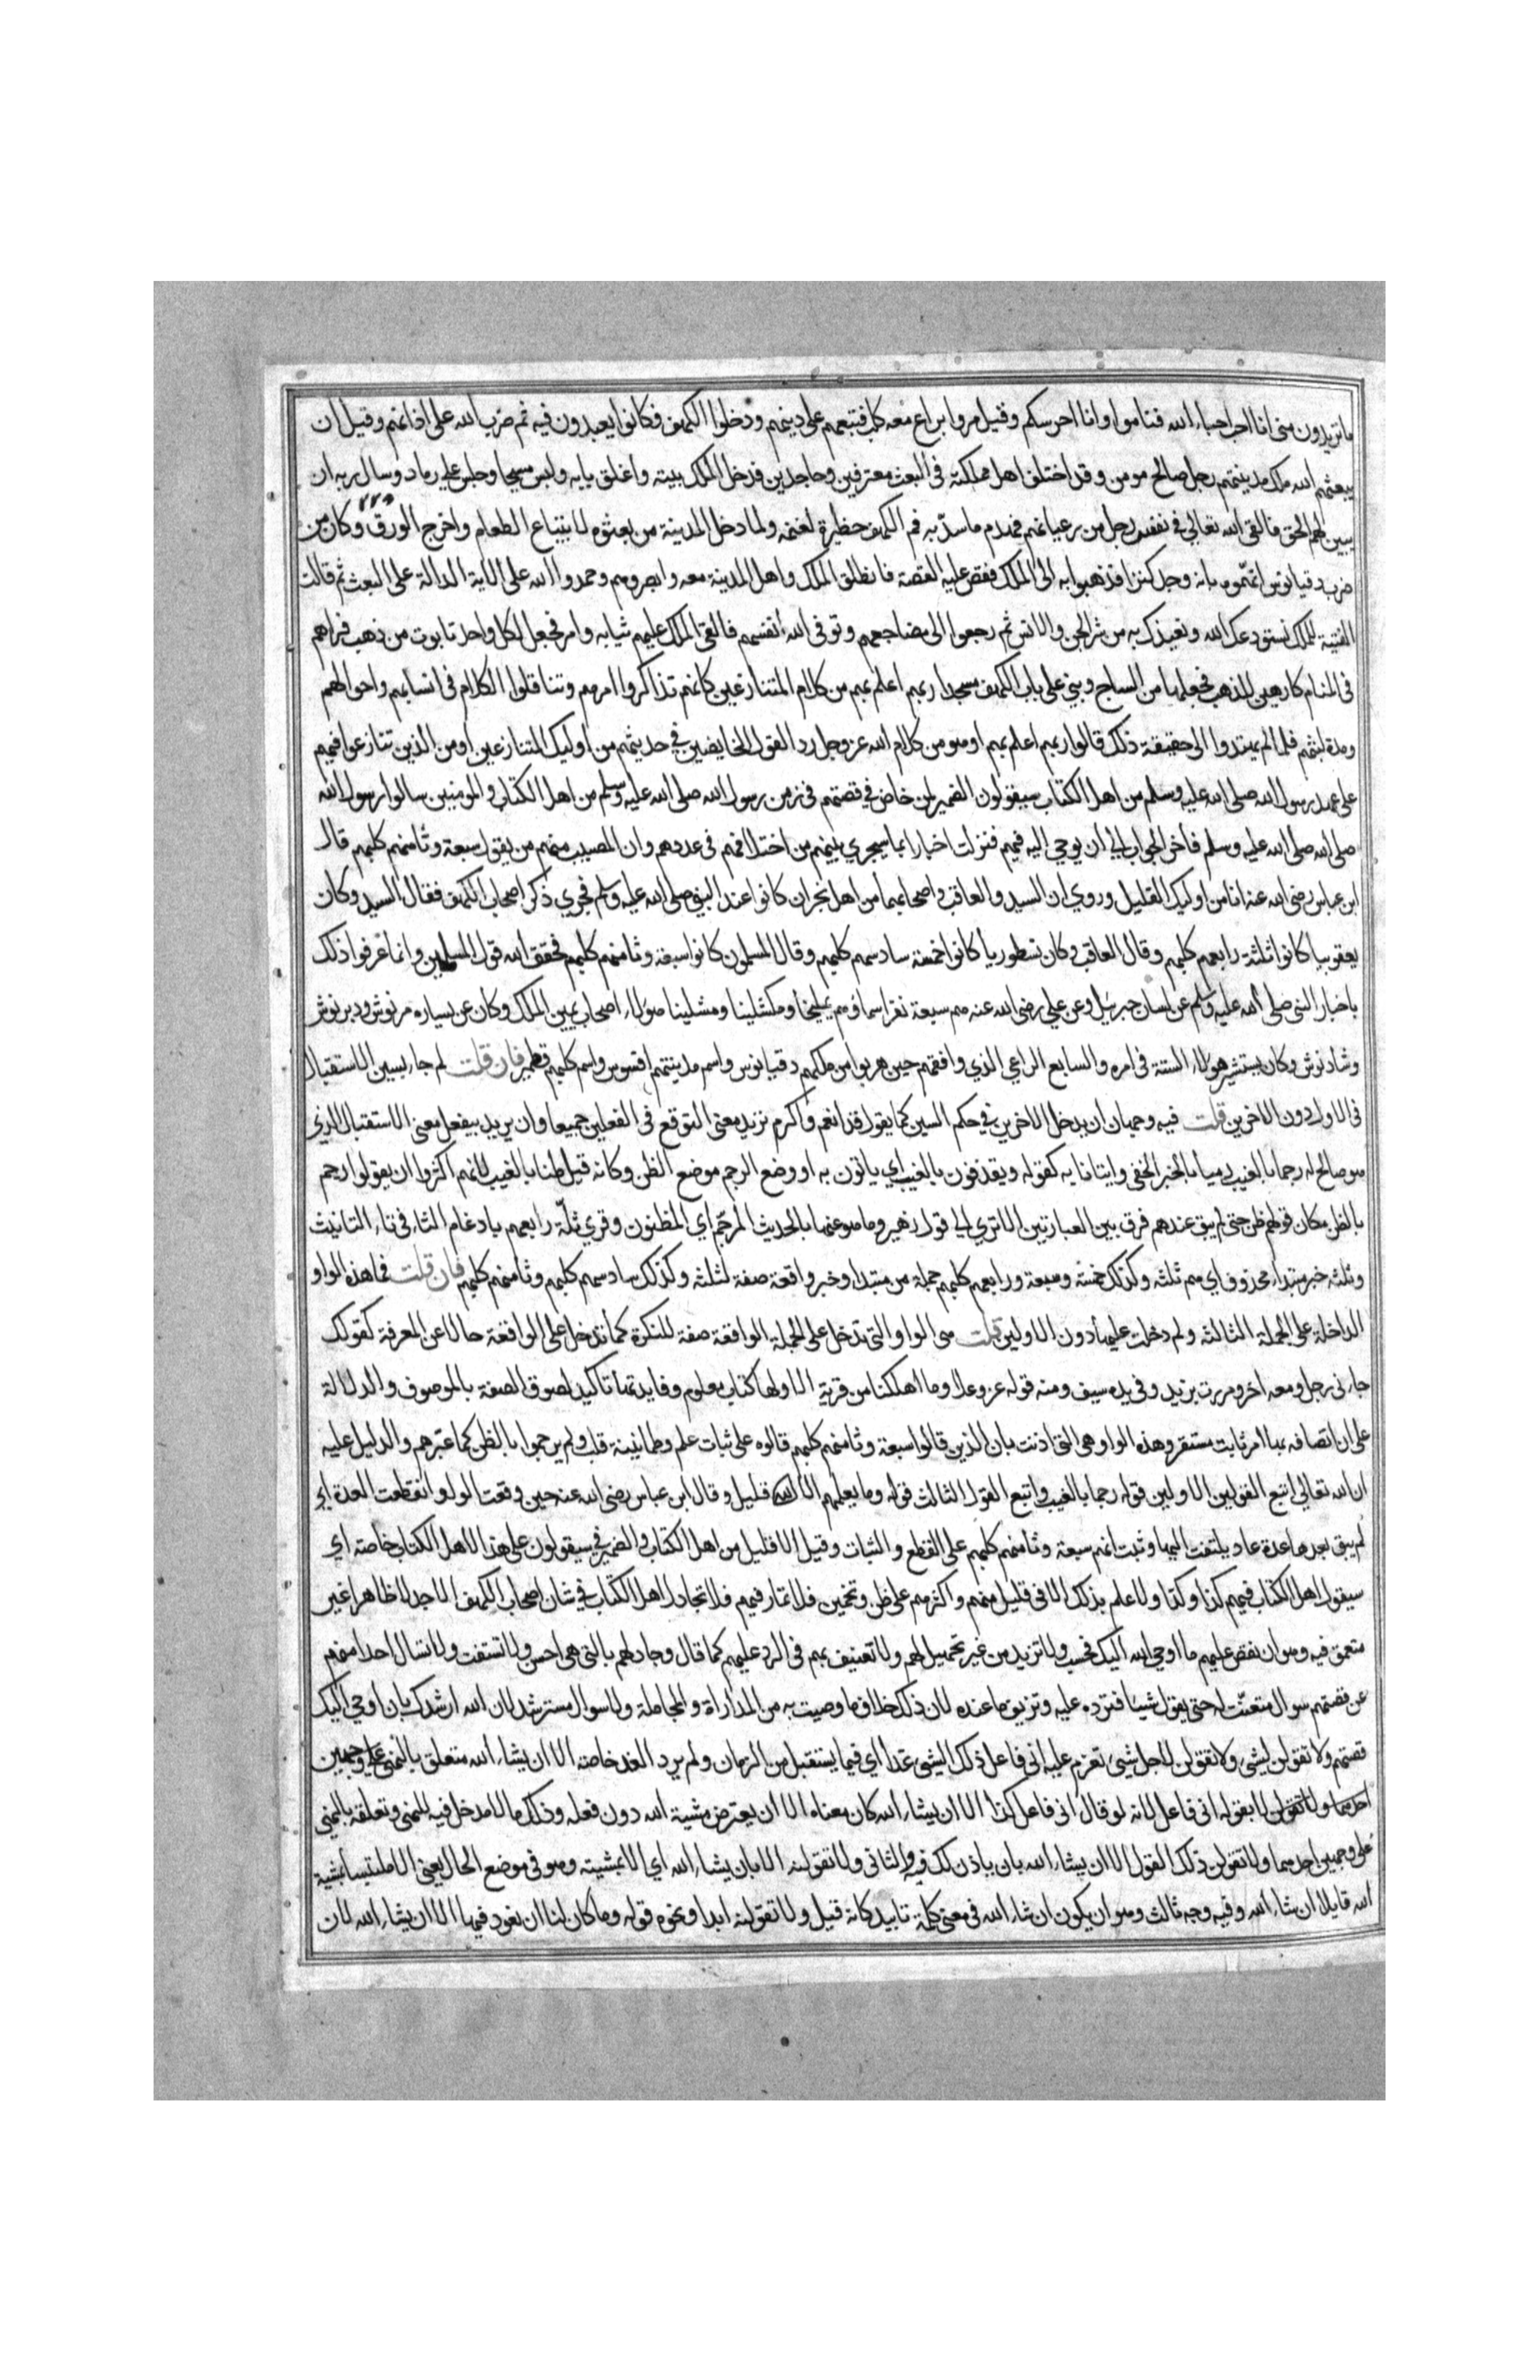 ما تريدون مني انا احب احباء الله فناموا وانا احرسكم وقيل مروا براع معه كلب فتبعهم على دينهم ودخلوا الكهف فكانوا يعبدون فيه ثم ضرب الله على اذانهم وقيل ان
يبعثهم الله ملك مدينتهم رجل صالح مومن وقد اختلف اهل مملكته في البعث معترفين وجاحدين فدخل الملك بيته واغلق بابه ولبس مسحا وجلس على رماد وسال ربه ان
يبين لهم الحق فالقى الله تعالى في نفس رجل من رعيانهم فهدم ما سدّ به فم الكهف حظيرة لغنمه ولما دخل المدينة من بعثوه لابتياع الطعام واخرج الورق وكان من
ضرب دقيانوس اتهموه بانه وجد كنزا فذهبوا به الى الملك فقص عليه القصة فانطلق الملك واهل المدينة معه وابصروهم وحمدوا الله على الاية الدالة على البعث ثم قالت
الفتية للملك نستودعك الله ونعيذك به من شر الجن والانس ثم رجعوا الى مضاجعهم وتوفى الله انفسهم فالقى الملك عليهم ثيابه وامر فجعل لكل واحد تابوت من ذهب فراهم
في المنام كارهين للذهب فجعلها من الساج وبنى على باب الكهف مسجدا ربهم اعلم بهم من كلام المتنازعين كانهم تذاكروا امرهم وتناقلوا الكلام في انسابهم واحوالهم
ومدة لبثهم فلما لم يهتدوا الى حقيقة ذلك قالوا ربهم اعلم بهم او هو من كلام الله عز وجل رد القول الخايضين في حديثهم من اوليك المتنازعين او من الذين تنازعوا فيهم
على عهد رسول الله صلى الله عليه وسلم من اهل الكتاب سيقولون الضمير لمن خاض في قصتهم في زمن رسول الله صلى الله عليه وسلم من اهل الكتاب والمومنين سالوا رسول الله
صلى الله صلى الله عليه وسلم فاخر الجواب الى ان يوحى اليه فيهم فنزلت اخبارا بما سيجري بينهم من اختلافهم في عددهم وان المصيب منهم من يقول سبعة وثامنهم كلبهم قال
ابن عباس رضى الله عنه انا من اوليك القليل وروي ان السيد والعاقب واصحابهما من اهل نجران كانوا عند النبي صلى الله عليه وسلم فجرى ذكر اصحاب الكهف فقال السيد وكان
يعقوبيا كانوا ثلثة رابعهم كلبهم وقال العاقب وكان نسطوريا كانوا خمسة سادسهم كلبهم وقال المسلمون كانوا سبعة وثامنهم كلبهم فحقق الله قول المسلمين وانما عرفوا ذلك
باخبار النبي صلى الله عليه وسلم عن لسان جبرئيل وعن علي رضي الله عنه هم سبعة نفر اسماؤهم يمليخا ومكشلينا ومشلينا هولاء اصحاب يمين الملك وكان عن يساره مرنوش ودبرنوش
وشادنوش وكان يستشير هولاء الستة في امره والسابع الراعي الذي وافقهم حين هربوا من ملكهم دقيانوس واسم مدينتهم افسوس واسم كلبهم قطمير فان قلت لم جاء بسين الاستقبال
في الاول دون الاخرين قلت فيه وجهان ان يدخل الاخرين في حكم السين كما يقول قد انعم واكرم نزيد معنى التوقع في الفعلين جميعا وان يريد بيفعل معنى الاستقبال الذي
هو صالح له رجما بالغيب رميا بالخبر الخفي واتيانا به كقوله ويقذفون بالغيب اي ياتون به او وضع الرجم موضع الظن وكانه قيل ظنا بالغيب لانهم اكثروا ان يقولوا رجم
بالظن مكان قولهم ظن حتى لم يبق عندهم فرق بين العبارتين الا ترى الى قول زهير وما هو عنها بالحديث المرجّم اي المظنون وقري ثلّثة رابعهم بادغام الثاء في تاء التانيث
وثلثه خبر مبتداء محذوف اي هم ثلثه وكذلك خمسة وسبعة ورابعهم كلبهم جملة من مبتدا وخبر واقعة صفة لثلثه وكذلك سادسهم كلبهم وثامنهم كلبهم فان قلت فما هذه الواو
الداخلة على الجملة الثالثه ولم دخلت عليها دون الاولين قلت هي الواو التي تدخل على الجملة الواقعة صفة للنكرة كما تدخل على الواقعة حالا عن المعرفة كقولك
جاءني رجل ومعه اخر ومررت بزيد وفي يده سيف ومنه قوله عز وعلا وما اهلكنا من قرية الا ولها كتاب معلوم وفايدتها تاكيد لصوق الصفة بالموصوف والدلالة
على ان اتصافه بها امر ثابت مستقر وهذه الواو هي التي اذنت بان الذين قالوا سبعة وثامنهم كلبهم قالوه على ثبات علم وطمانينة قلب ولم يرجموا بالظن كما غيرهم والدليل عليه
ان الله تعالى اتبع القولين الاولين قوله رجما بالغيب واتبع القول الثالث قوله وما يعلمهم الا قليل وقال ابن عباس رضى الله عنه حين وقعت الواو انقطعت العدة اي
لم يبق بعدها عدة عاد يلتفت اليها وثبت انهم سبعة وثامنهم كلبهم على القطع والثبات وقيل الا قليل من اهل الكتاب والضمير في سيقولون على هذا لاهل الكتاب خاصة اي
سيقول اهل الكتاب فيهم كذا وكذا ولا علم بذلك الا في قليل منهم واكثرهم على ظن وتخمين فلا تمار فيهم فلا تجادل اهل الكتاب في شان اصحاب الكهف الا جدلا ظاهرا غير
متعمق فيه وهو ان تقص عليهم ما اوحى الله اليك فحسب ولا تزيد من غير تجهيل لهم ولا تعنيف بهم في الرد عليهم كما قال وجادلهم بالتي هي احسن ولا تستفت ولا تسال احدا منهم
عن قصتهم سوال متعنّت له حتى يقول شيئا فترده عليه وتزيف ما عنده لان ذلك خلاف ما وصيت به من المداراة والمجاملة ولا سوال مسترشد لان الله ارشدك بان اوحى اليك
قصتهم ولا تقولن لشي ولا تقولن لاجل شي تعزم عليه اني فاعل ذلك الشي غدا اي فيما يستقبل من الزمان ولم يرد الغد خاصة الا ان يشاء الله متعلق بالنهي على وجهين
احدهما ولا تقولن لا بقوله اني فاعل لانه لو قال اني فاعل كذا الا ان يشاء الله كان معناه الا ان يعترض مشية الله دون فعله وذلك مما لا مدخل فيه للنهي وتعلقه بالنهي
على وجهين احدهما ولا تقولن ذلك القول الا ان يشاء الله بان ياذن لك فيه والثاني ولا تقولنه الا بان يشاء الله اي الا بمشيته وهو في موضع الحال يعني الا ملتبسا بمشية
الله قايلا ان شاء الله وفيه وجه ثالث وهو ان يكون ان شاء الله في معنى كلمة تابيد كانه قيل ولا تقولنه ابدا ونحوه قوله وما كان لنا ان نعود فيها الا ان يشاء الله لان